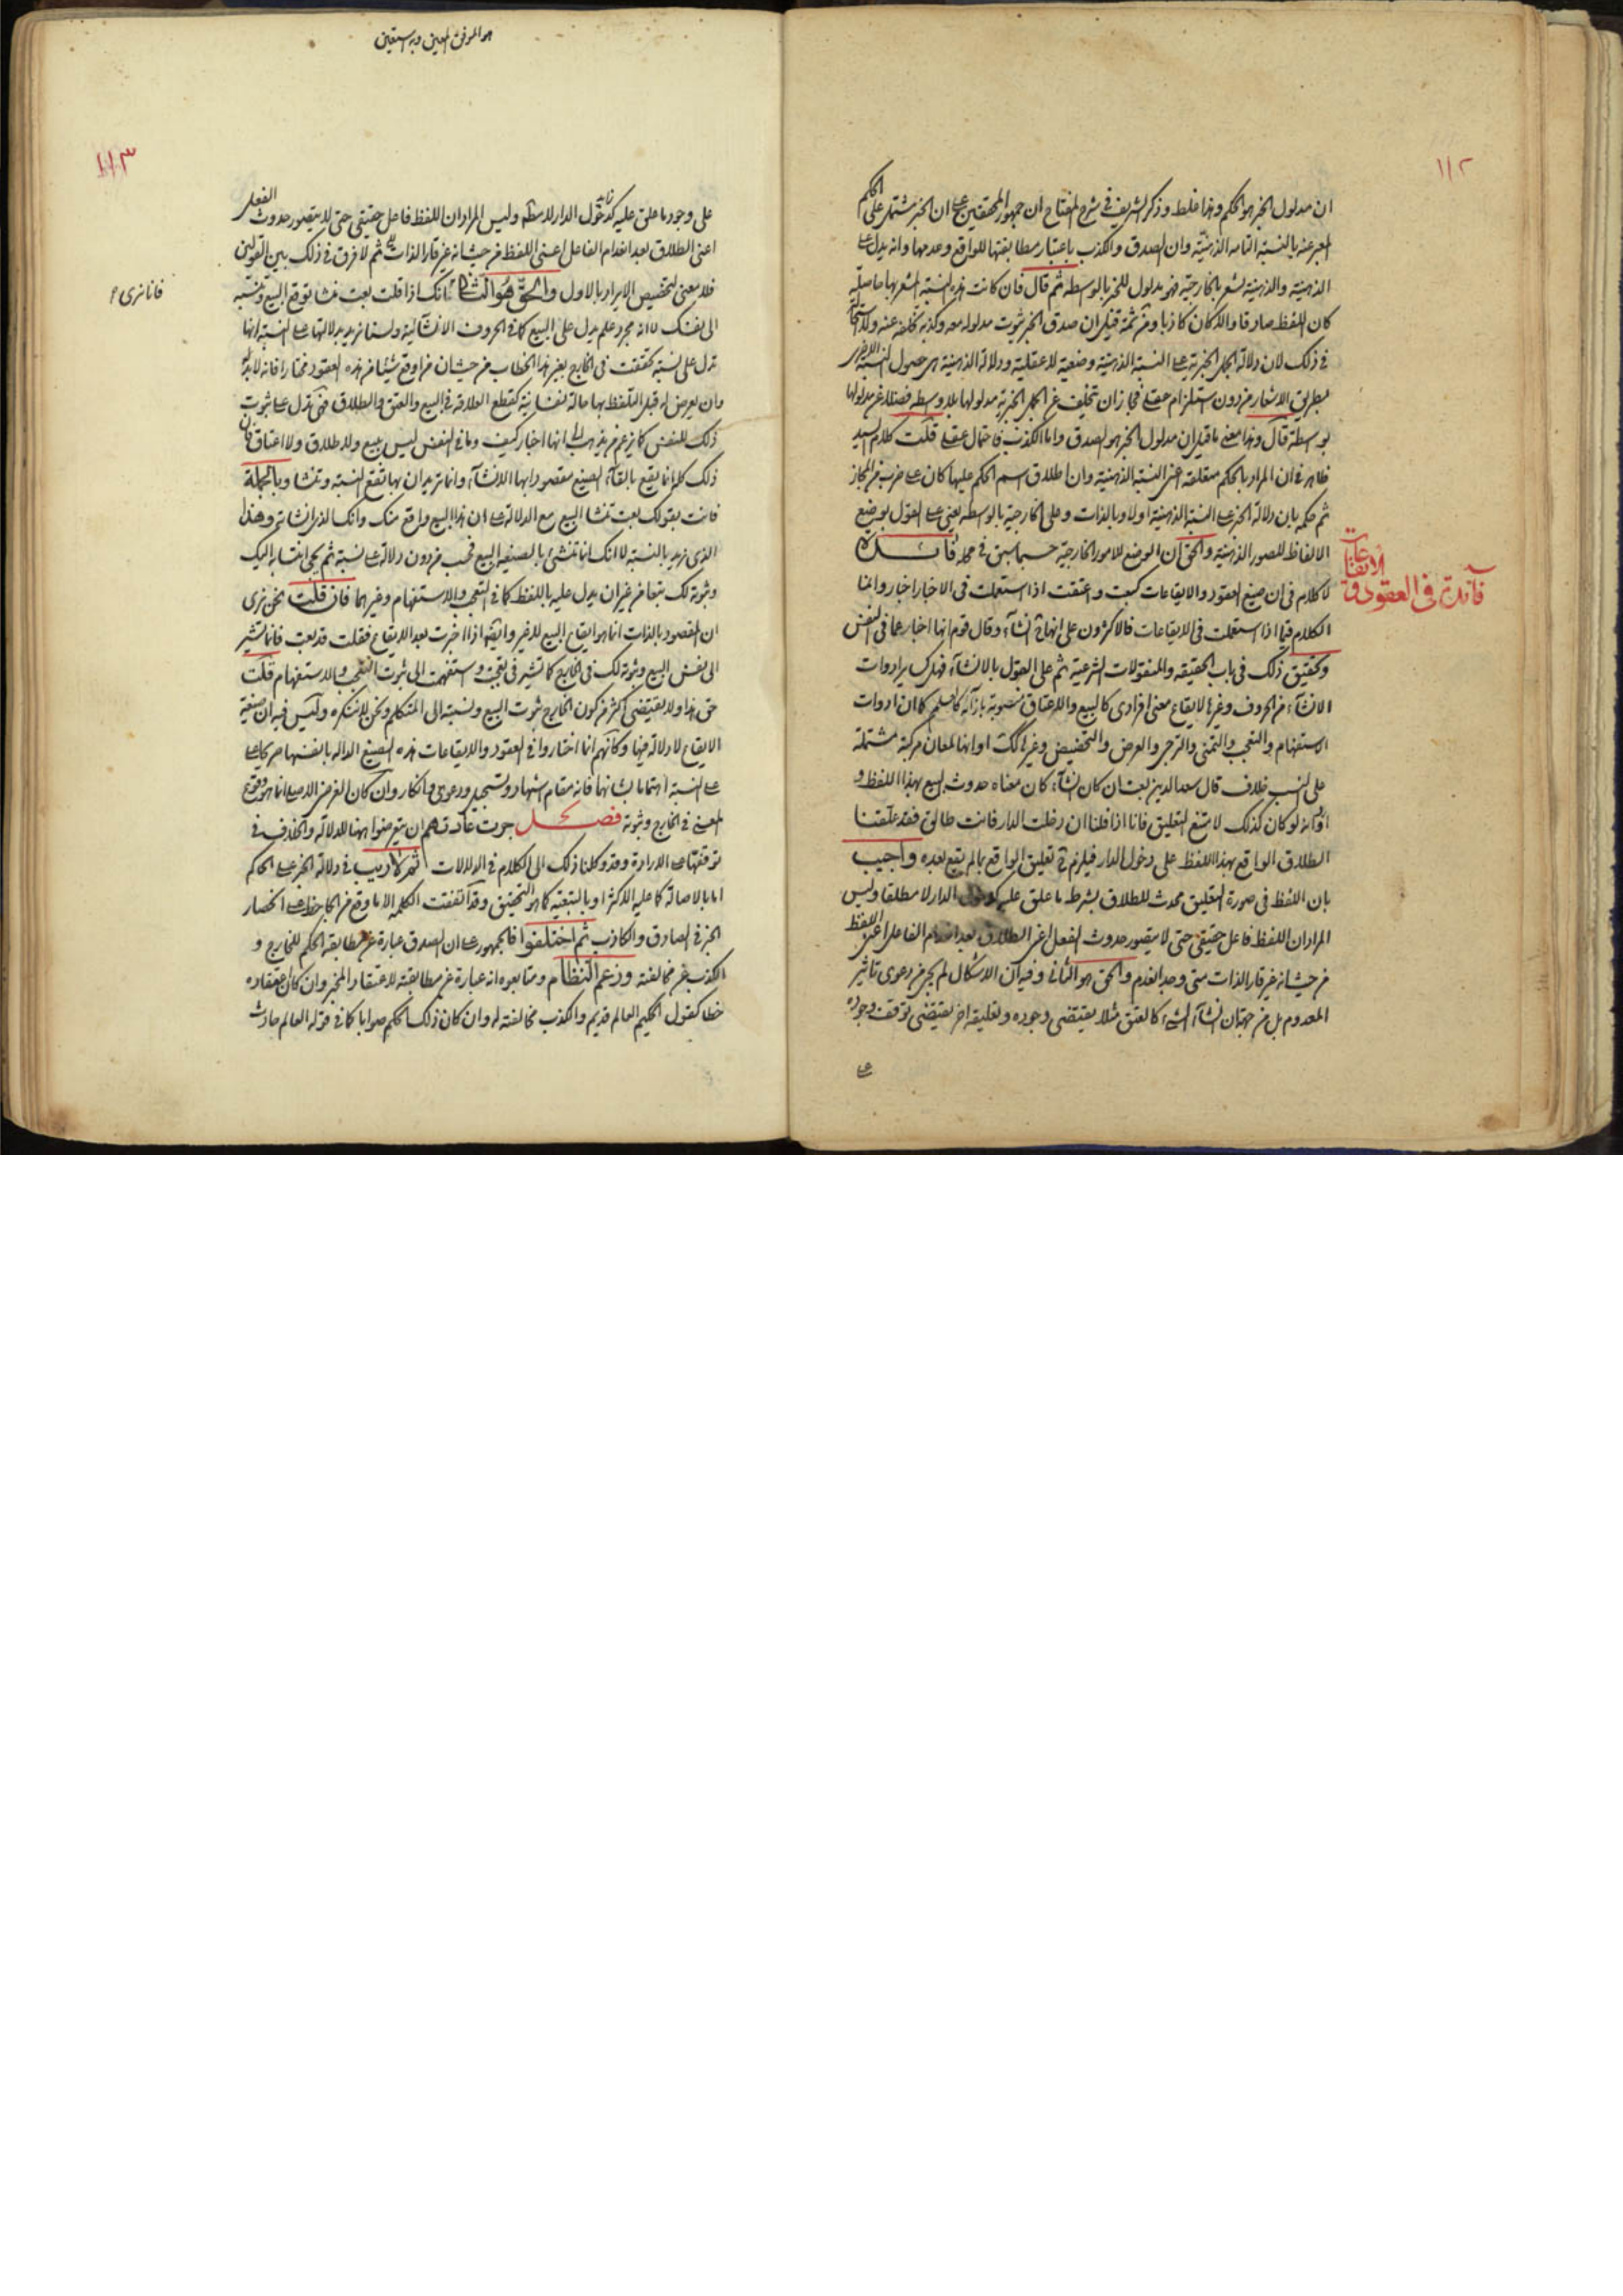 ١١٢
ان مدلول الخبر هو الحكم وهذا غلط وذكر الشريف في شرح المفتاح ان جمهور المحققين على ان الخبر يشتمل على الحكم
المعبر عنه بالنسبة التامه الذهنيّة وان الصدق والكذب باعتبار مطابقتها للواقع وعدمها وانه يدل على
الذهنية والذهنية تشعر بالخارجيّة فهو مدلول للخبر بالوسطه ثم قال فان كانت هذه النسبة المشعر بها حاصلة
كان اللفظ صادقا والا كان كاذبا ومن ثمة قيل ان صدق الخبر ثبوت مدلوله معه وكذبه تخلفه عنه ولا استحالة
في ذلك لان دلالة الجمل الخبرية على النسبة الذهنيّة وضعية لا عقليّة ودلالة الذهنية على حصول النسبة الاخرى
بطريق الاشعار من دون استلزام عقلي فجاز ان تتخلف عن الجمل الخبرية مدلولها بلا وسطه فضلا عن مدلولها
بوسطة قال وهذا معنى ما قيل ان مدلول الخبر هو الصدق واما الكذب فاحتمال عقلي قلت كلام السيد
ظاهر في ان المراد بالحكم متعلقه اعني النسبة الذهنية وان اطلاق اسم الحكم عليها كان على ضرب من المجاز
ثم حكمه بان دلالة الخبر على النسبة الذهنية اولا وبالذات وعلى الخارجية بالوسطه يعني على القول بوضع
الالفاظ للصور الذهنية والحق ان الوضع للامور الخارجية حسبما سبق في محله فائدة
فائدة في العقود والايقاعات
لا كلام في ان صيغ العقود والايقاعات كبعت واعتقت اذا استعملت في الاخبار اخبار وانما
الكلام فيما اذا استعملت في الايقاعات فالاكثرون على انها ح انشاء وقال قوم انها اخبار عما في النفس
وتحقيق ذلك في باب الحقيقه والمنقولات الشرعية ثم على القول بالانشاء فهل كساير ادوات
الانشاء من الحروف وغيرها لايقاع معنى افرادى كالبيع والاعتاق منصوبة بازائه كالعلم كما ان ادوات
الاستفهام والتعجب والتمنى والترجي والعرض والتحضيض وغيرها كك او انها لمعان مركبة مشتملة
على النسب خلاف قال سعد الدين بعت ان كان انشاء كان معناه حدوث البيع بهذا اللفظ و
اورد انه لو كان كذلك لامتنع التعليق فانا اذا قلنا ان دخلت الدار فانت طالق فقد علقنا
الطلاق الواقع بهذا اللفظ على دخول الدار فيلزم ح تعليق الواقع بما لم يقع بعده واجيب
بان اللفظ في صورة التعليق محدث للطلاق بشرطه ما علق عليه كدخول الدار لا مطلقا وليس
المراد ان اللفظ فاعل حقيقي حتى لا يتصور حدوث الفعل اعني الطلاق بعد انعدام الفاعل اعني اللفظ
من حيث انه غير قار الذات متى وجد انعدم والحق هو الثاني وفيه ان الاشكال لم يجئ من دعوى تاثير
المعدوم بل من جهة ان انشاء الشيء كالعتق مثلا يقتضى وجوده وتعليقه اخر يقتضى توقف وجوده
على
هو الموفق المعين وبه نستعين
١١٣
على وجود ما علق عليه كدخول الدار لاسطة وليس المراد ان اللفظ فاعل حقيقي حتى لا يتصور حدوث الفعل
اعنى الطلاق بعد انعدام الفاعل اعنى اللفظ من حيث انه غير قار الذات ثم لا فرق في ذلك بين القولين
فلا معنى لتخصيص الايراد بالاول والحق هو الثاني فانك اذا قلت بعت منشا توقع البيع وتنسبه
فانا نرى
الى نفسك لا انه مجرد علم يدل على البيع كما في الحروف الانشائية ولسنا نريد بدلالتها على النسبة انها
تدل على نسبة تحققت في الخارج بغير هذا الخطاب من حيث ان من اوقع شيئا من هذه العقود مختارا فانه لا بد
وان يعرض له قبل التلفظ بها حالة نفسانية كقطع العلاقه في البيع والعتق والطلاق فهى تدل على ثبوت
ذلك للنفس كما يزعم من يذهب الى انها اخبار كيف وما في النفس ليس ببيع ولا طلاق ولا اعتاق
ذلك كله انما يقع بالقاء الصيغ مقصودا بها الانشاء وانما نريد ان بها تقع النسبة وتنشا وبالجملة
فانت بقولك بعت تنشا البيع مع الدلالة على ان هذا البيع واقع منك وانك الذي انشاته وهذا
الذي نريد بالنسبة لا انك انما تنشئ بالصيغه البيع فحسب من دون دلالة على نسبة ثم يجئ انتسابه اليك
وثبوته لك تبعا من غير ان يدل عليه باللفظ كما في التعجب والاستفهام وغيرهما فان قلت نحن نرى
ان المقصود بالذات انما هو ايقاع البيع لا غير وايقه اذا اخبرت بعد الايقاع فقلت قد بعت فانما تشير
الى نفس البيع وثبوته لك في الخارج كما تشير في تعجبت واستفهمت الى ثبوت التعجب والاستفهام قلت
حق هذا ولا يقتضى اكثر من كون الخارج ثبوت البيع ونسبته الى المتكلم ونحن لا ننكره وليس فيه ان صيغة
الايقاع لا دلالة فيها وكانهم انما اختاروا في العقود والايقاعات هذه الصيغ الداله بانفسها صريحا على
على النسبة اهتماما بشانها فانه مقام اشهاد وتسجيل ودعوى وانكار وان كان الغرض الاصلي انما هو وقوع
المعنى في الخارج وثبوته فصل جرت عادتهم ان يتعرضوا ههنا للدلالة والخلاف في
توقفها على الارادة وقد وكلنا ذلك الى الكلام في الدلالات ثم لا ريب في دلالة الخبر على الحكم
اما بالاصالة كما عليه الاكثر او بالتبعية كما هو التحقيق وقد اتفقت الكلمه الا ما وقع من الجاحظ على انحصار
الخبر في الصادق والكاذب ثم اختلفوا فالجمهور على ان الصدق عبارة عن مطابقة الحكم للخارج و
الكذب عن مخالفته وزعم النظام ومتابعوه انه عبارة عن مطابقته لاعتقاد المخبر وان كان اعتقاده
خطا كقول الحكيم العالم قديم والكذب مخالفته له وان كان ذلك الحكم صوابا كما في قوله العالم حادث